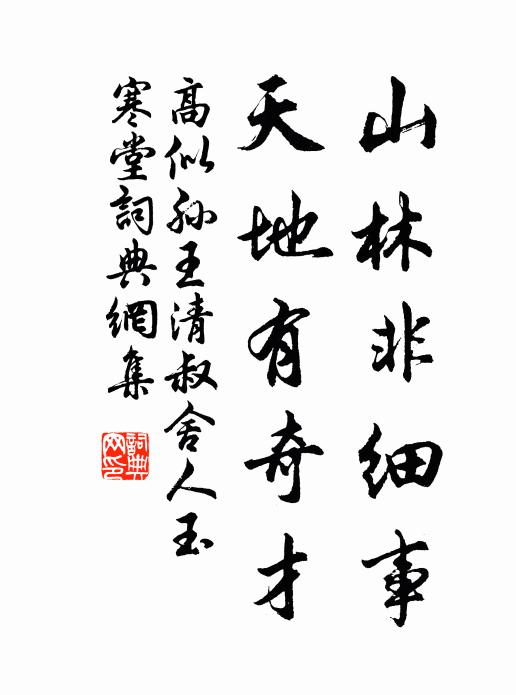 山林非细事
天地有奇才
高似孙王清叔舍人玉
寒堂詞典網集
詞典網印